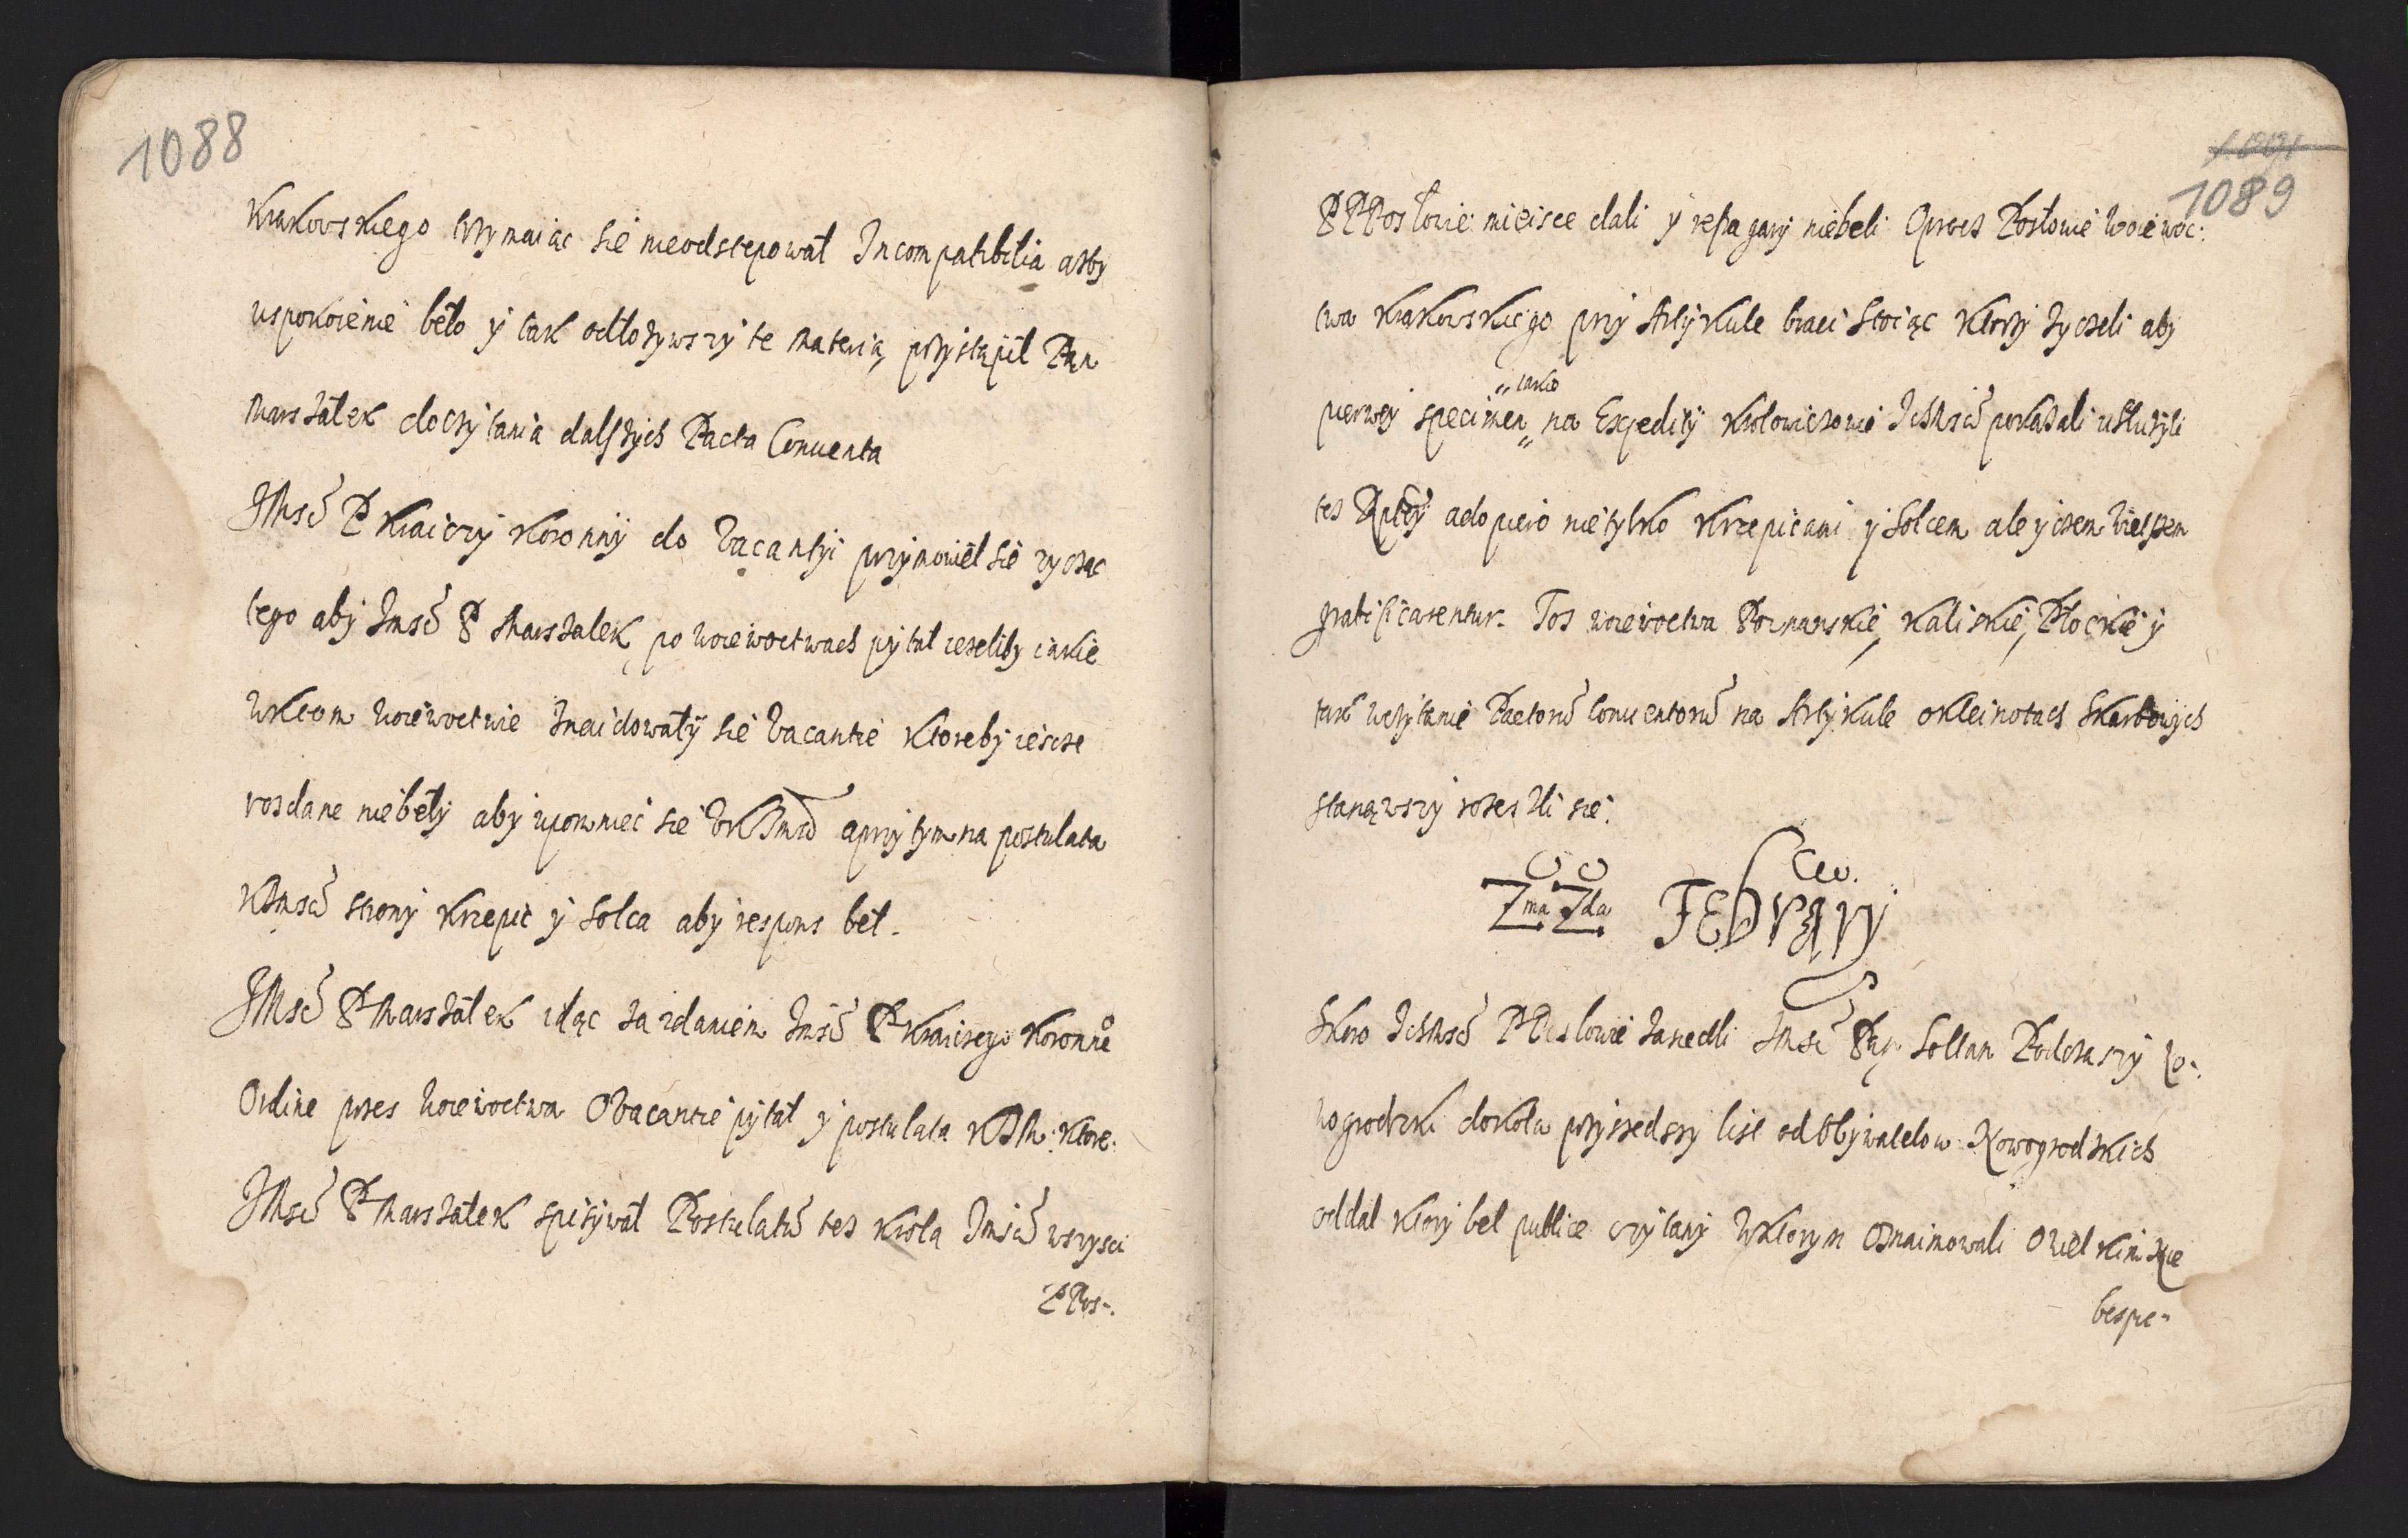 1088
Krakowskiego trzymaiąc sie nieodstepował Incompatibilia azby
uspokoienie beło y tak odłozywszy te materią przystąpił Pan
Marszałek do czytania dalszych Pacta Conuenta
JMsć P Kraiczy Koronny do Vacantyi przymowieł sie zycząc
tego aby Jmsć P Marszalek po woiewoctwach pytał iezeliby iakie
w ktom woiewoctwie znaidowały sie Vacantie ktoreby iescze
rosdane niebeły aby upomniec sie VKJmsci a przytym na postulata
KJmsci strony Krzepic y Solca aby respons beł.
JMsć P Marszałek idąc za zdaniem Jmsć P Kraiczego Koronne
Ordine przes woiewoctwa O Vacantie pytał y postulata KJM: ktore.
JMsć P Marszałek spisywał Postulatu tes Krola Jmsci wszysci
PPos-.
1091
1089
PPPosłowie mieisce dali y repagary niebeli Oprocz Posłowie woiewoc:
twa Krakowskiego przy Artykule braci stoiąc ktorzy zyczeli aby
iakie
pierwey specimen na Expedity Krolowiczowie IchMsć pokazali usłuzyli
tes Rptcy a dopiero nietylko Krzepicami y Solcem ale y czem wietszem
gratificarentur. Tos woiewoctwa Poznanskie, Kaliskie, Płockie y
tak wczytanie Pactoru Conuentoru na Artykule o kleinotach skarbowych
stanąwszy rozeszli sie.
Zma Zda Februarij
Skoro IchMsć PPosłowie zasiedli Jmsć Pan Sołtan Podczaszy No-.
wogrodzki do koła przyszedszy list od Obywatelow Nowogrodzkich
oddał ktory beł publice czytany w ktorym Oznaimowali O wielkim Nie
bespie-